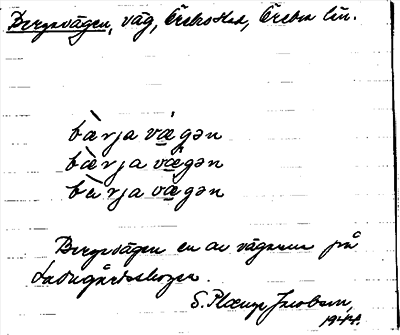 Bergavägen, väg, Örebro stad, Örebro län.
bàrja vä̀gən
bàrja vä̀gən
bàrja vä̀gən
Bergavägen en av vägarna på
Ladugårdsskogen.
S. Plœnge Jacobson,
1944.